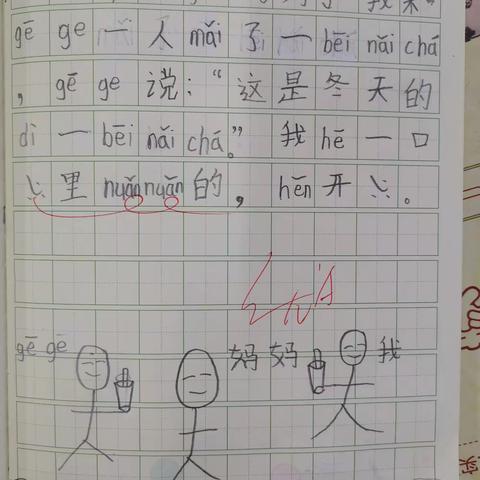 我来
gē ge 一人 mǎi 了一 bēi nǎi chá
，gē ge 说：“这是冬天的
dì 一 bēi nǎi chá。”我 hē 一口
心里 nuǎn nuǎn 的，hěn 开心。
gē gē
妈妈
我